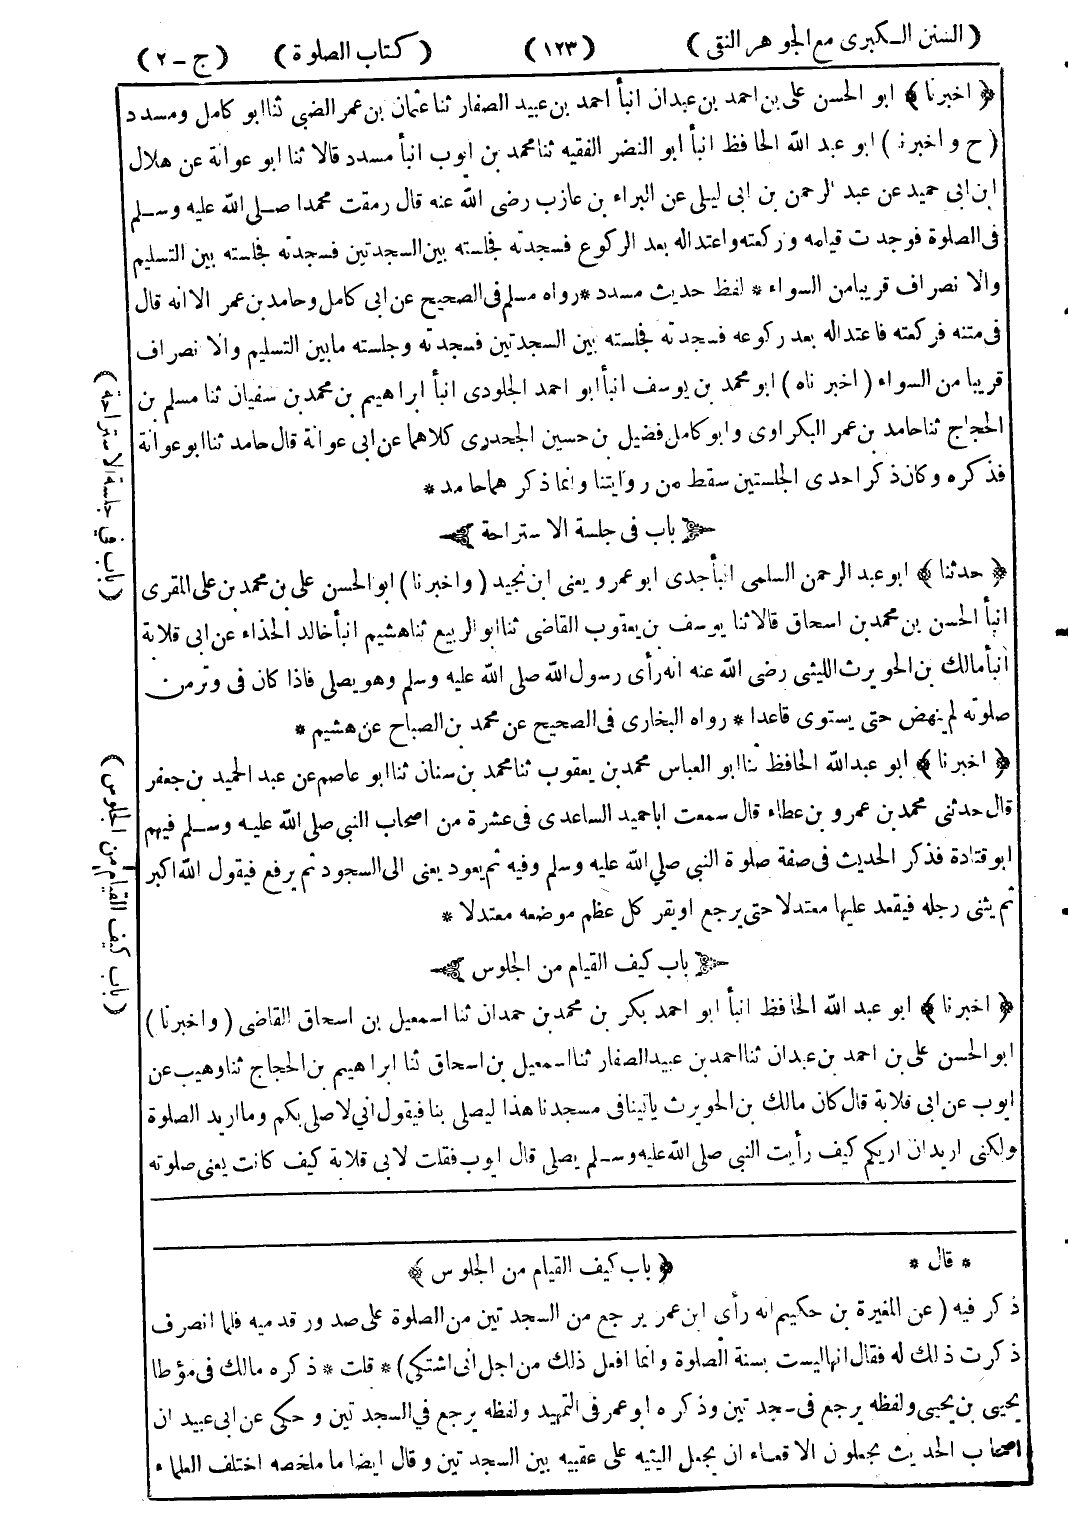 (السنن الـكبرى مع الجوهر النقى) (١٢٣) (كتاب الصلوة) (ج-٢)
﴿اخبرنا﴾ ابو الحسن على بن احمد بن عبدان انبأ احمد بن عبيد الصفار ثنا عثمان بن عمر الضبى ثنا ابو كامل ومسدد
(ح واخبرنا) ابو عبد الله الحافظ انبأ ابو النضر الفقيه ثنا محمد بن ايوب انبأ مسدد قالا ثنا ابو عوانة عن هلال
ابن ابى حميد عن عبد الرحمن بن ابى ليلى عن البراء بن عازب رضى الله عنه قال رمقت محمدا صلى الله عليه وسلم
فى الصلوة فوجدت قيامه وركعته واعتداله بعد الركوع فسجدته فجلسته بين السجدتين فسجدته فجلسته بين التسليم
والانصراف قريبا من السواء * لفظ حديث مسدد * رواه مسلم فى الصحيح عن ابى كامل وحامد بن عمر الا انه قال
فى متنه فركعته فاعتداله بعد ركوعه فسجدته فجلسته بين السجدتين فسجدته وجلسته ما بين التسليم والانصراف
قريبا من السواء (اخبرناه) ابو محمد بن يوسف انبأ ابو احمد الجلودى انبأ ابراهيم بن محمد بن سفيان ثنا مسلم بن
الحجاج ثنا حامد بن عمر البكراوى وابو كامل فضيل بن حسين الجحدرى كلاهما عن ابى عوانة قال حامد ثنا ابو عوانة
فذكره وكان ذكر احدى الجلستين سقط من روايتنا وانما ذكرهما حامد *
باب فى جلسة الاستراحة
﴿حدثنا﴾ ابو عبد الرحمن السلمى انبأ جدى ابو عمرو يعنى ابن نجيد (واخبرنا) ابو الحسن على بن محمد بن على المقرى
انبأ الحسن بن محمد بن اسحاق قالا ثنا يوسف بن يعقوب القاضى ثنا ابو الربيع ثنا هشيم انبأ خالد الحذاء عن ابى قلابة
انبأ مالك بن الحويرث الليثى رضى الله عنه انه رأى رسول الله صلى الله عليه وسلم وهو يصلى فاذا كان فى وتر من
صلوته لم ينهض حتى يستوى قاعدا * رواه البخارى فى الصحيح عن محمد بن الصباح عن هشيم *
﴿اخبرنا﴾ ابو عبدالله الحافظ ثنا ابو العباس محمد بن يعقوب ثنا محمد بن سنان ثنا ابو عاصم عن عبد الحميد بن جعفر
قال حدثنى محمد بن عمرو بن عطاء قال سمعت اباحميد الساعدى فى عشرة من اصحاب النبى صلى الله عليه وسلم فيهم
ابو قتادة فذكر الحديث فى صفة صلوة النبى صلى الله عليه وسلم وفيه ثم يعود يعنى الى السجود ثم يرفع فيقول الله اكبر
ثم يثنى رجله فيقعد عليها معتدلا حتى يرجع او يقر كل عظم موضعه معتدلا *
باب كيف القيام من الجلوس
﴿اخبرنا﴾ ابو عبد الله الحافظ انبأ ابو احمد بكر بن محمد بن حمدان ثنا اسمعيل بن اسحاق القاضى (واخبرنا)
ابو الحسن على بن احمد بن عبدان ثنا احمد بن عبيد الصفار ثنا اسمعيل بن اسحاق ثنا ابراهيم بن الحجاج ثنا وهيب عن
ايوب عن ابى قلابة قال كان مالك بن الحويرث ياتينا فى مسجدنا هذا ليصلى بنا فيقول انى لاصلى بكم وما اريد الصلوة
ولكنى اريد ان اريكم كيف رأيت النبى صلى الله عليه وسلم يصلى قال ايوب فقلت لابى قلابة كيف كانت يعنى صلوته
(باب فى جلسة الاستراحة)
(باب كيف القيام من الجلوس)
* قال * ﴿باب كيف القيام من الجلوس﴾
ذكر فيه (عن المغيرة بن حكيم انه رأى ابن عمر يرجع من السجدتين من الصلوة على صدور قدميه فلما انصرف
ذكرت ذلك له فقال انها ليست بسنة الصلوة وانما افعل ذلك من اجل انى اشتكى) * قلت * ذكره مالك فى مؤطا
يحيى بن يحيى ولفظه يرجع فى سجدتين وذكره ابو عمر فى التمهيد ولفظه يرجع فى السجدتين وحكى عن ابى عبيد ان
اصحاب الحديث يجعلون الاقعاء ان يجعل اليتيه على عقبيه بين السجدتين وقال ايضا ما ملخصه اختلف العلماء